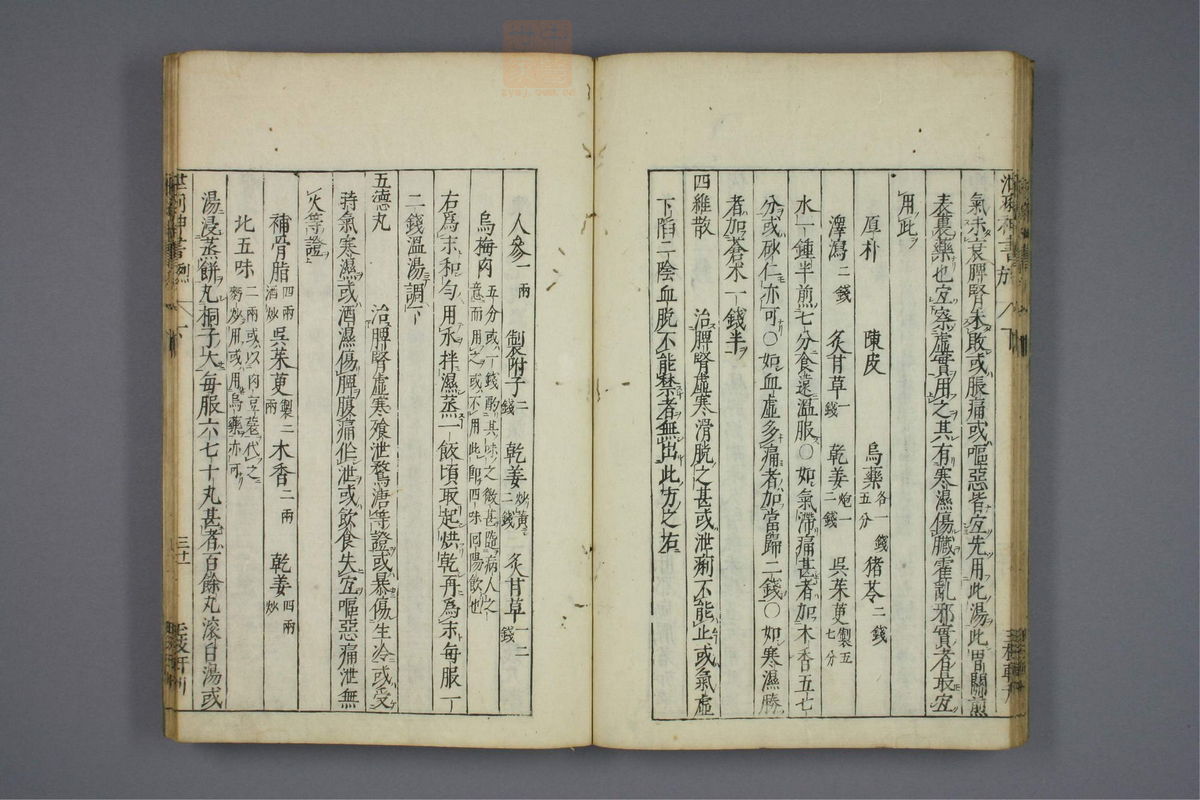 氣未衰脾腎未敗或脹痛或嘔惡皆宜先用此湯此胃關煎
表裏藥也宜察虛實用之其有寒濕傷臟霍亂邪實者最宜
用此
厚朴 陳皮 烏藥各一錢五分 猪苓二錢
澤瀉二錢 炙甘草一錢 乾姜炮一二錢 吳茱萸製五七分
水一鍾半煎七分食遠溫服○如氣滯痛甚者加木香五七
分或砂仁亦可○如血虛多痛者加當歸二錢○如寒濕勝
者加蒼朮一錢半
四維散 治脾腎虛寒滑脫之甚或泄痢不能止或氣虛
下陷二陰血脫不能禁者無出此方之右
人參一兩 製附子二錢 乾姜炒黃二錢 炙甘草一二錢
烏梅肉五分或一錢酌其味之微甚臨病人之意而用之或不用此即四味回陽飲也
右爲末和勻用水拌濕蒸一飯頃取起烘乾再爲末每服一
二錢溫湯調下
五德丸 治脾腎虛寒飧泄鶩溏等證或暴傷生冷或受
時氣寒濕或酒濕傷脾腹痛作泄或飲食失宜嘔惡痛泄無
火等證
補骨脂四兩酒炒 吳茱萸製二兩 木香二兩 乾姜四兩炒
北五味二兩或以肉豆蔻代之麪炒用或用烏藥亦可
湯浸蒸餅丸桐子大每服六七十丸甚者百餘丸滾白湯或
三十一